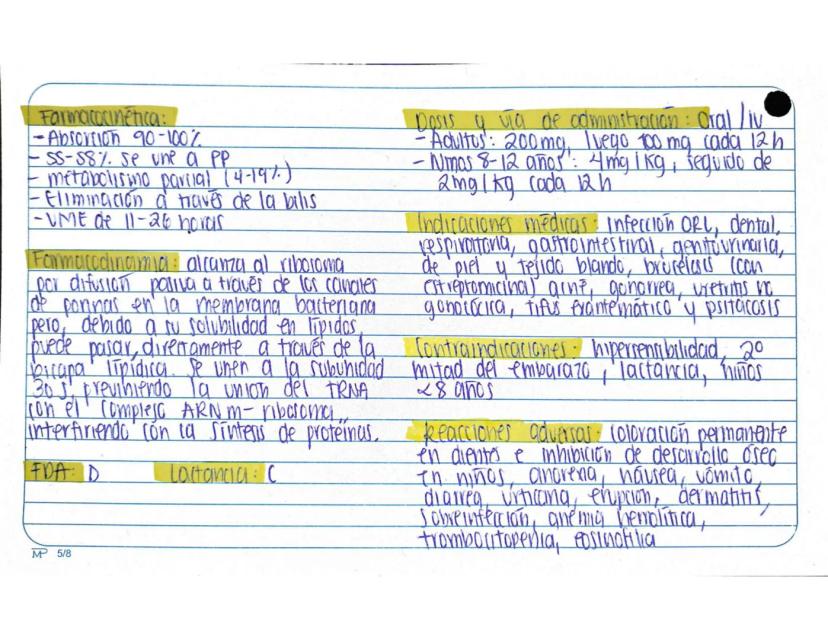 Farmacocinética:
- Absorción 90-100%
- 55-58% se une a PP
- metabolismo parcial (4-19%)
- Eliminación a través de la bilis
- VME de 11-26 horas
Farmacodinamia: alcanza al ribosoma
por difusión pasiva a través de los canales
de porinas en la membrana bacteriana
pero, debido a su solubilidad en lípidos,
puede pasar directamente a través de la
bicapa lipídica. Se unen a la subunidad
30 s, previniendo la union del tRNA
con el complejo ARNm-ribosoma,
interfiriendo con la síntesis de proteínas.
FDA: D Lactancia: C
Dosis y vía de administración: Oral/iv
- Adultos: 200mg, luego 100 mg cada 12h
- Niños 8-12 años: 4mg/kg, seguido de
2mg/kg cada 12h
Indicaciones médicas: infección ORL, dental,
respiratoria, gastrointestinal, genitourinaria,
de piel y tejido blando, brucelosis (con
estreptomicina) acné, gonorrea, uretritis no
gonocócica, tifus exantemático y psitacosis
Contraindicaciones: hipersensibilidad, 2º
mitad del embarazo, lactancia, niños
<8 años
Reacciones adversas: coloración permanente
en dientes e inhibición de desarrollo óseo
en niños, anorexia, náusea, vómito,
diarrea, urticaria, erupción, dermatitis,
sobreinfección, anemia hemolítica,
trombocitopenia, eosinofilia
MP 5/8